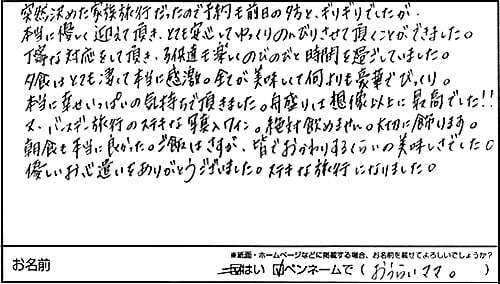 突然決めた家族旅行だったので予約も前日の夕方と、ギリギリでしたが、
本当に優しく迎えて頂き、とても安心してゆっくりのんびりさせて頂くことができました。
丁寧な対応をして頂き、子供達も楽しくのびのびと時間を過ごしていました。
夕食はとても凄くて本当に感激。全てが美味しくて何よりも豪華でびっくり。
本当に幸せいっぱいの気持ちで頂きました。舟盛りは想像以上に最高でした!!
又、バースデー旅行のステキな写真入りワイン。絶対飲めません。大切に飾ります。
朝食も本当に良かった。ご飯はさすが、皆でおかわりするくらいの美味しさでした。
優しいお心遣いをありがとうございました。ステキな旅行になりました。
※紙面・ホームページなどに掲載する場合、お名前を載せてよろしいでしょうか?
お名前 はい ペンネームで( おうらいママ。 )